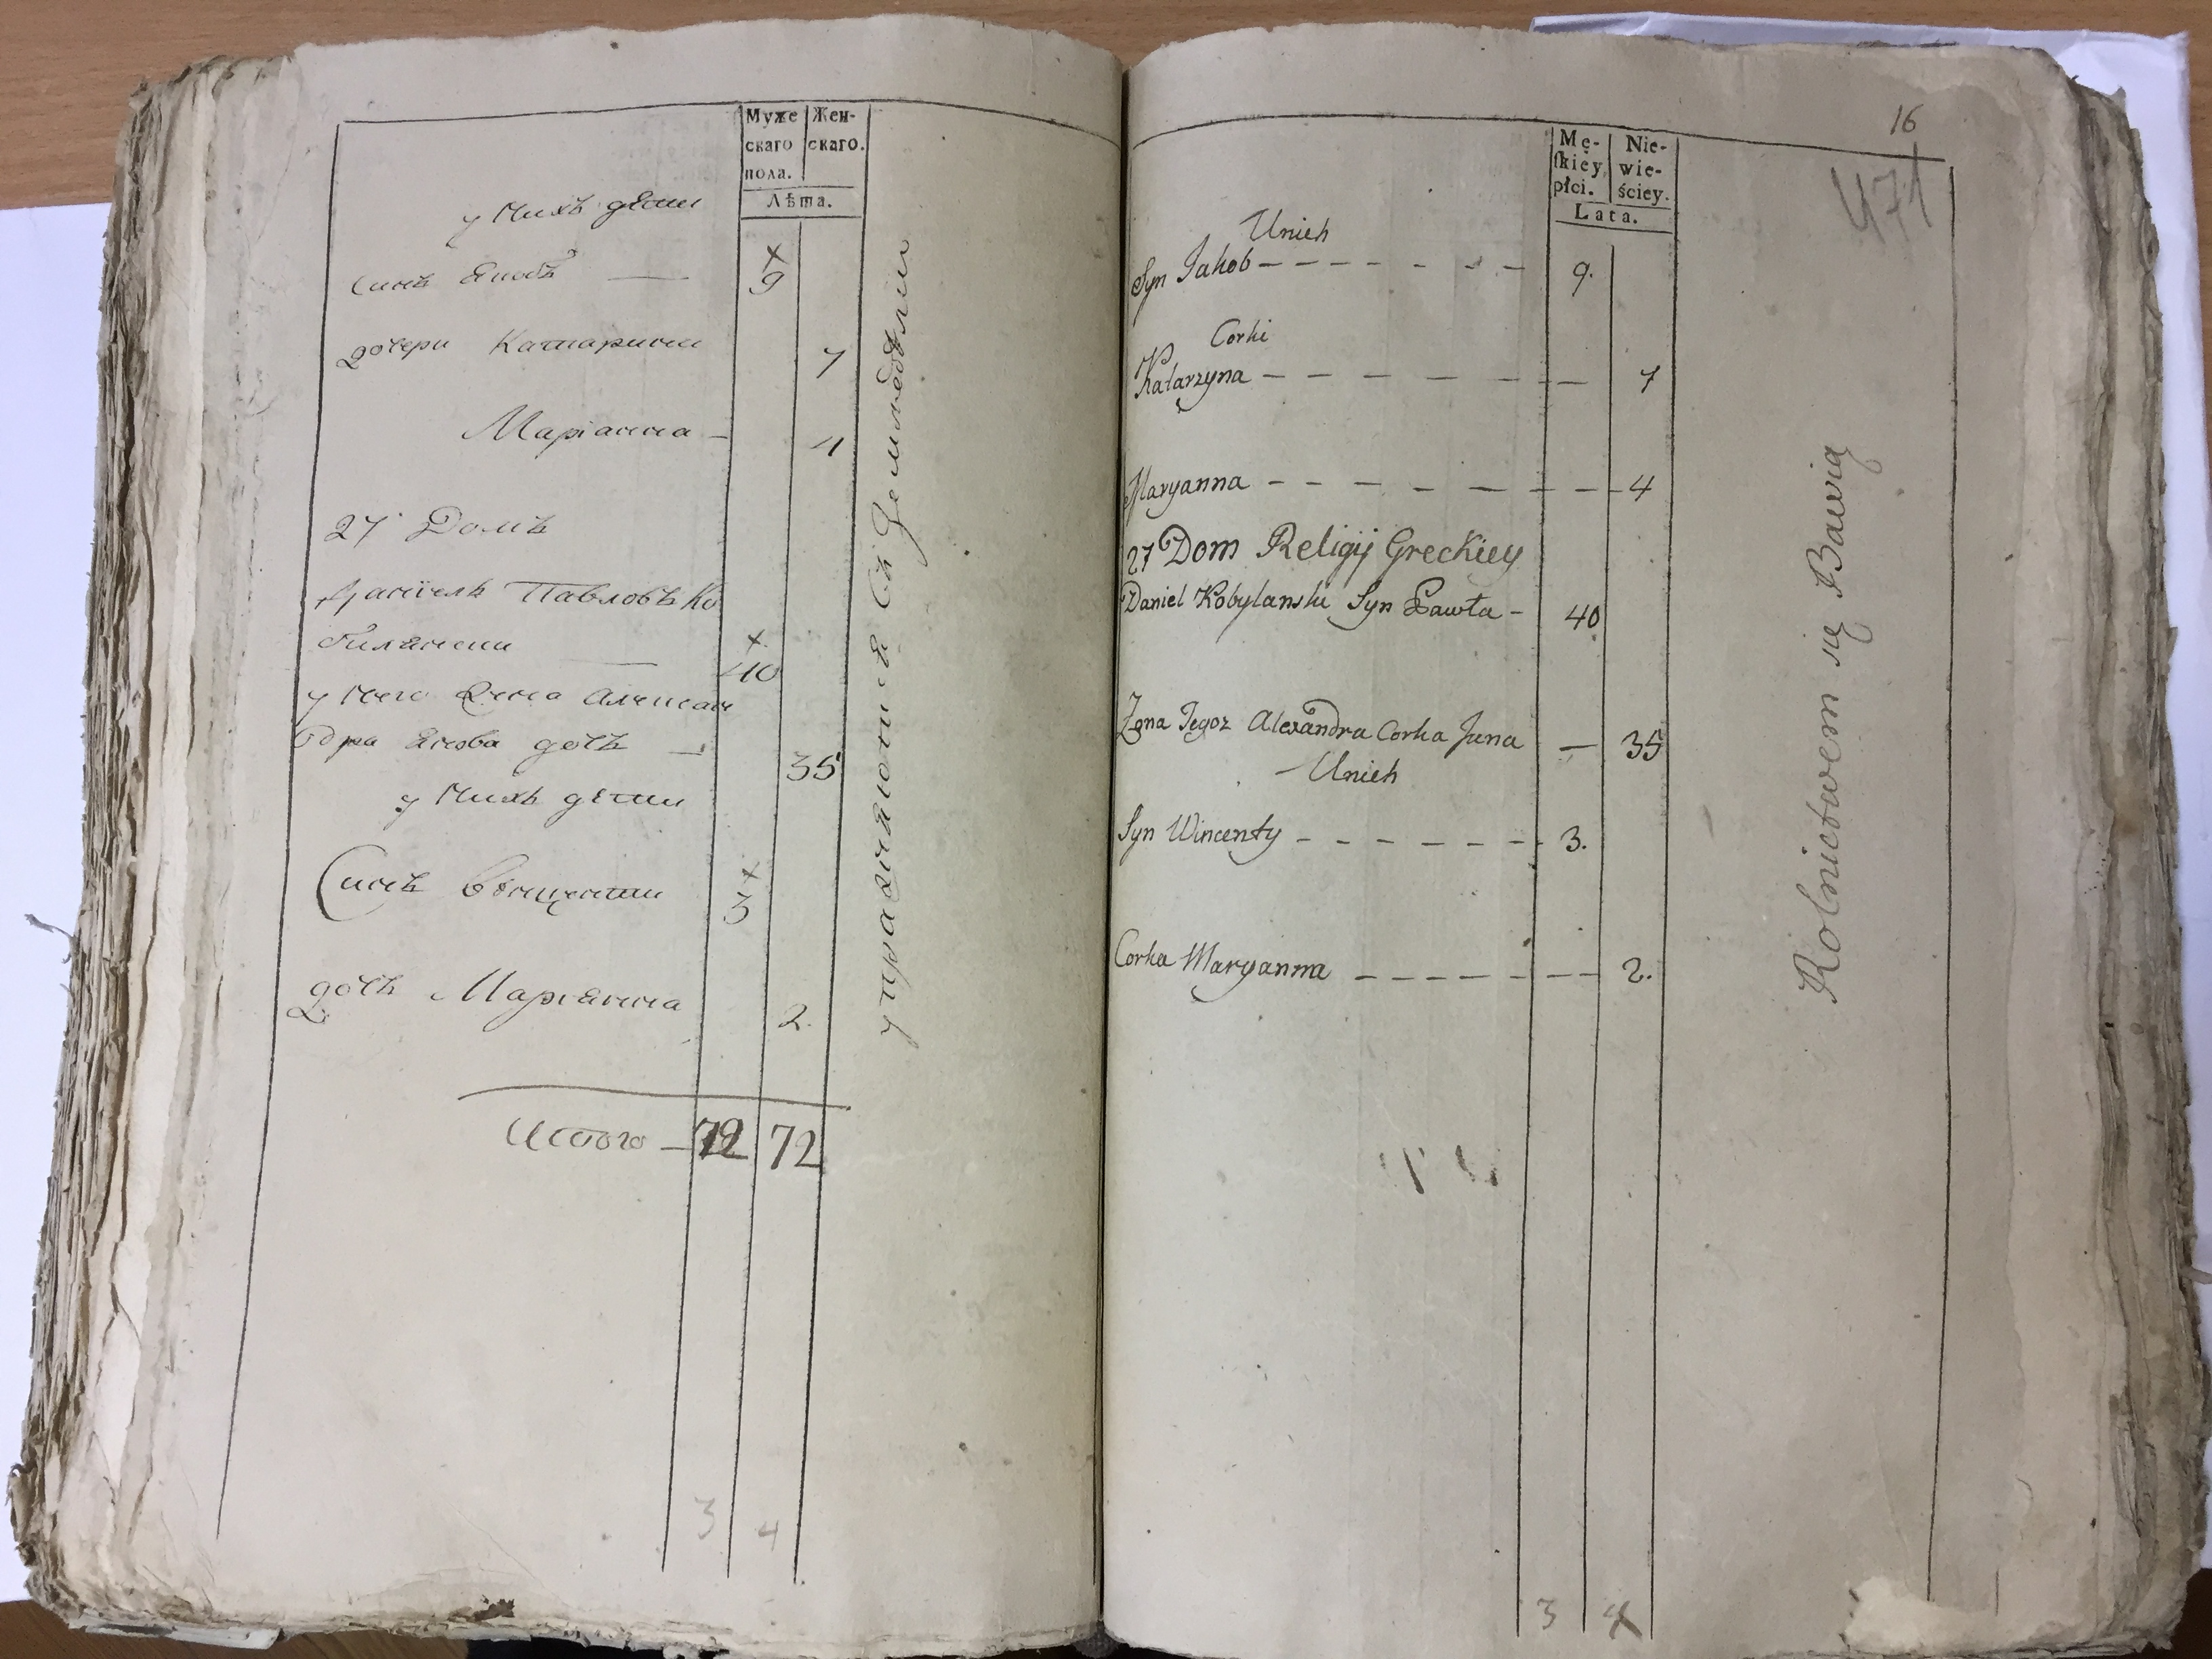 Муже
скаго
пола.
Жен-
скаго.
Лѣта.
у нихъ дѣти
Синъ Якобъ — 9
дочери Катарина 7
Маріанна — 4
27 Домъ
Даніель Павловъ Ко
билянски — 40
у него Жена Алексан
дра Янова дочь — 35
у нихъ дѣти
Синъ Винцентии 3
дочь Маріянна 2.
Итого — 72 72
3 4
упражняютця въ Земледѣлии
16
471
Mę-
ſkiey
płci.
Nie-
wie-
ściey.
Lata.
Unich
Syn Jakob — — — — — — 9.
Corki
Katarzyna — — — — — — 7
Maryanna — — — — — — — 4
27 Dom Religij Greckiey
Daniel Kobylanski Syn Pawła — 40
Zona Jegoz Alexandra Corka Jana — 35
— Unich
Syn Wincenty — — — — — — 3.
Corka Maryanna — — — — — — 2.
3 4
Rolnictwem się Bawią